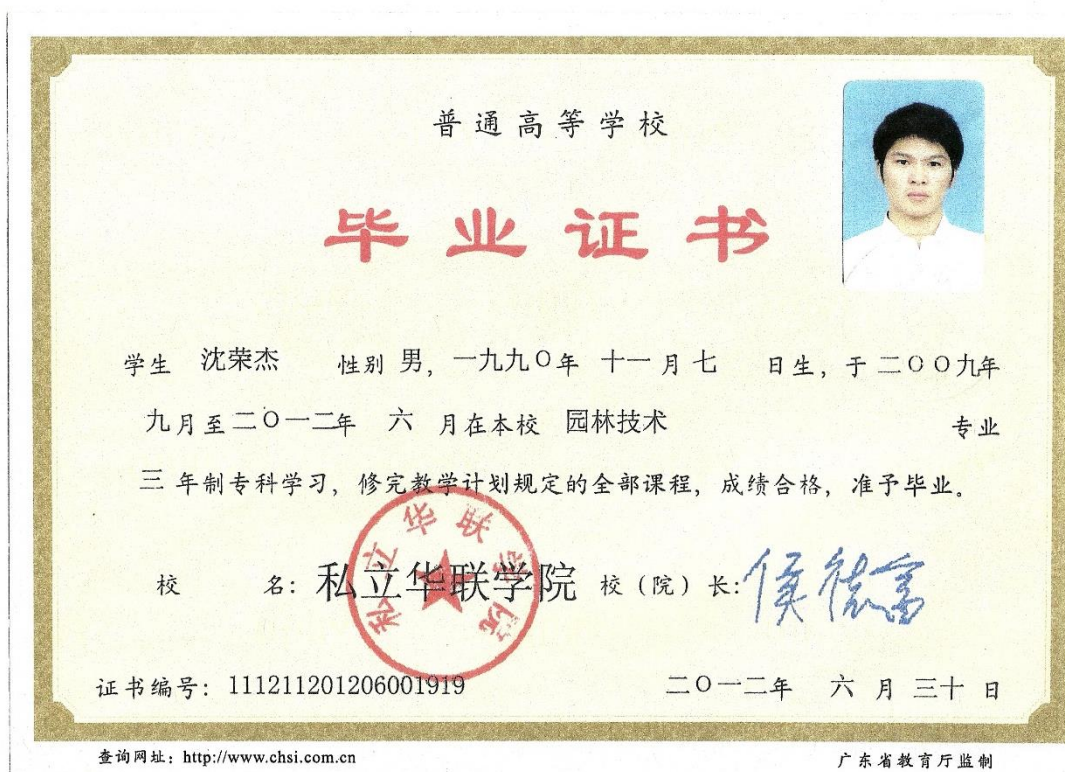 普通高等学校
毕业证书
学生 沈荣杰 性别 男，一九九〇年 十一月七 日生，于二〇〇九年
九月至二〇一二年 六 月在本校 园林技术 专业
三 年制专科学习，修完教学计划规定的全部课程，成绩合格，准予毕业。
私立华联学院
校 名：私立华联学院 校（院）长：侯德富
证书编号：111211201206001919 二〇一二年 六 月 三十 日
查询网址：http://www.chsi.com.cn 广东省教育厅监制